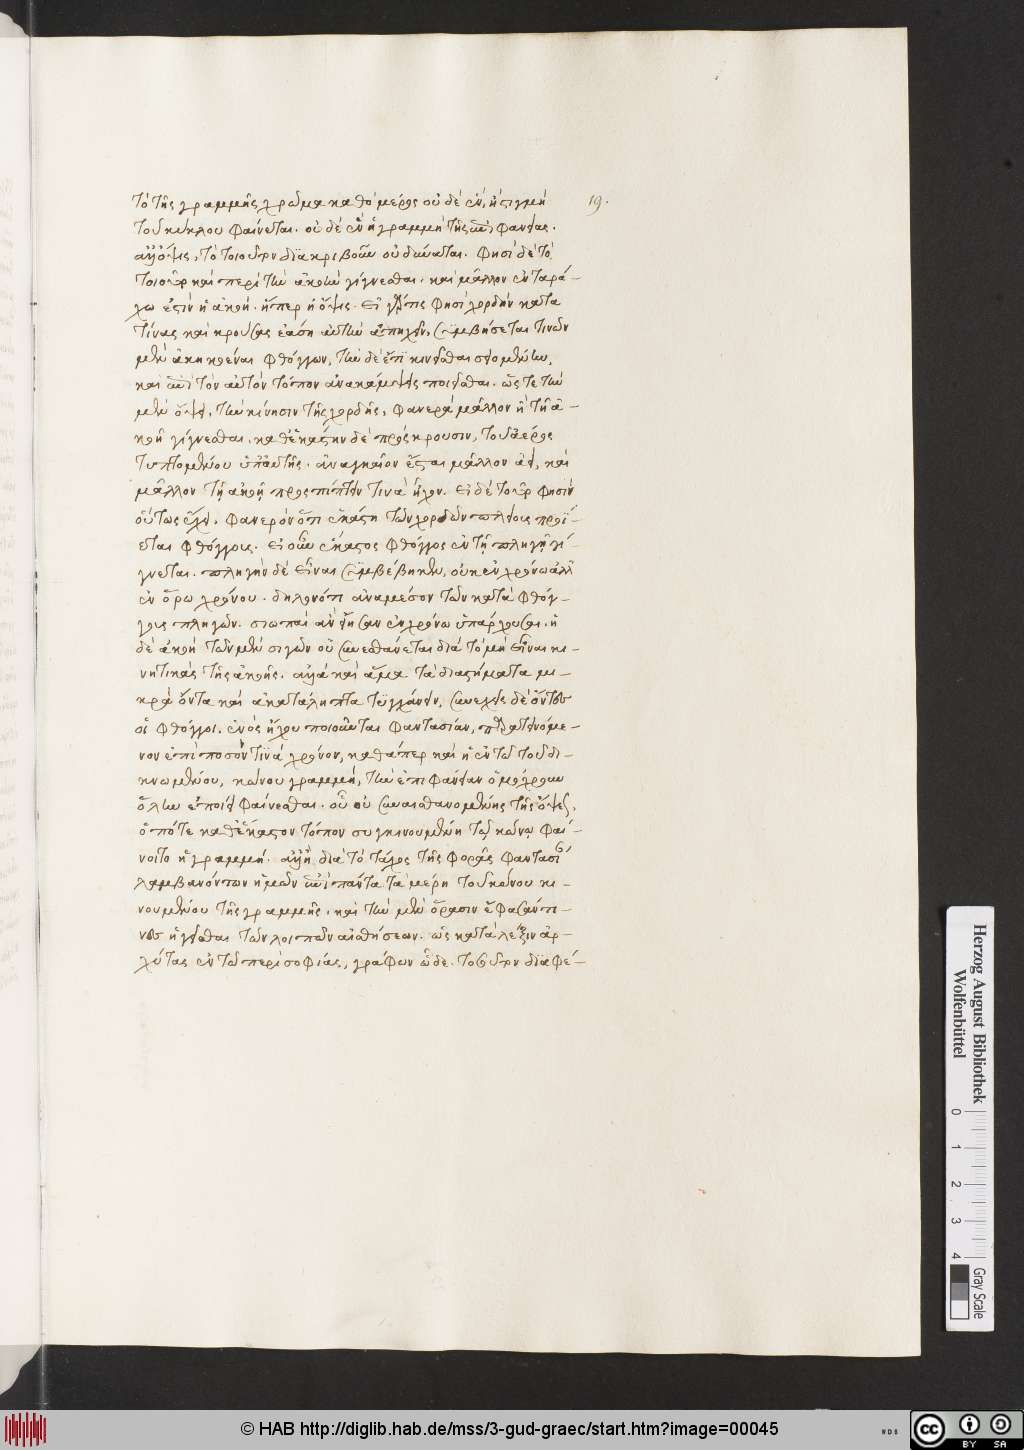 τὸ τῆς γραμμῆς χρῶμα καθὸ μέρος οὐδὲ ἓν, ἡ στιγμὴ 19.
τοῦ κύκλου φαίνεται. οὐδὲ ἓν ἡ γραμμὴ τῆς ἐπιφανείας.
ἀλλ' ὄψις, τὸ τοιοῦτον διακριβοῦν οὐ δύναται. φησὶ δὲ τὸ
τοιοῦτον καὶ περὶ τὴν ἀκοὴν γίγνεσθαι. καὶ μᾶλλον ἐν ταρά-
χῳ ἐστὶν ἡ ἀκοὴ. ἤπερ ἡ ὄψις. εἰ γάρ τις φησὶ χορδὴν κατα
τίνας καὶ κρούσας ἐάσῃ αὐτὴν ἀπηχεῖν, συμβήσεται τινῶν
μὲν ἀκηκοέναι φθόγγων, τὴν δὲ ἔτι κινεῖσθαι στρομένην,
καὶ ἐπὶ τὸν αὐτὸν τόπον ἀνακάμψεις ποιεῖσθαι. ὥστε τὴν
μὲν ὄψει, τὴν κίνησιν τῆς χορδῆς, φανερὰ μᾶλλον ἢ τῇ ἀ-
κοῇ γίγνεσθαι. καθ' ἑκάστην δὲ πρόσκρουσιν, τοῦ ἀέρος
τυπτομένου ὑπ' αὐτῆς. ἀναγκαῖον ἔσται μᾶλλον ἀεὶ, καὶ
μᾶλλον τῇ ἀκοῇ προσπίπτειν τινὰ ἦχον. εἰ δὲ τοῦτο φησὶν
οὕτως ἔχει. φανερὸν ὅτι ἑκάστη τῶν χορδῶν πλείους προΐ-
εται φθόγγοις. εἰ οὖν ἕκαστος φθόγγος ἐν τῇ πληγῇ γί-
γνεται. πληγὴν δὲ εἶναι συμβέβηκεν, οὐκ ἐν χρόνῳ ἀλλ'
ἐν ὅρῳ χρόνου. δηλονότι ἀναμέσον τῶν κατὰ φθόγ-
γοις πληγῶν. σιωπαὶ ἂν εἶησαν ἐν χρόνῳ ὑπάρχουσαι. ἡ
δὲ ἀκοὴ τῶν μὲν σιγῶν οὐ συνεσθάνεται διὰ τὸ μὴ εἶναι κι-
νητικὰς τῆς ἀκοῆς. ἀλλὰ καὶ ἅμα τὰ διαστήματα μι-
κρὰ ὄντα καὶ ἀκατάληπτα τυγχάνειν. συνεχεῖς δὲ ὄντες
οἱ φθόγγοι. ἑνὸς ἤχου ποιοῦνται φαντασίαν, παρατεινόμε-
νον ἐπὶ ποσὸν τινὰ χρόνον, καθάπερ καὶ ἡ ἐν τῷ τοῦ δι-
κινωμένου, κώνου γραμμὴ, τὴν ἐπιφάνειαν ὁμόχρουν
ὅλην ἐποίει φαίνεσθαι. οὗ οὐ συναισθανομένης τῆς ὄψεως,
ὁπότε καθ' ἕκαστον τόπον συγκινουμένη τῷ κώνῳ φαί-
νοιτο ἡ γραμμή. ἀλλ' ἢ διὰ τὸ τάχος τῆς φορᾶς φαντασί
λαμβανόντων ἡμῶν ἐπὶ πάντα τὰ μέρη τοῦ κώνου κι-
νουμένου τῆς γραμμῆς. καὶ τὴν μὲν ὅρασιν ἔφασάν τι-
νες ἡγεῖσθαι τῶν λοιπῶν αἰσθήσεων. ὡς κατὰ λέξιν ἀρ-
χύτας ἐν τῷ περὶ σοφίας, γράφων ὧδε. τοσοῦτον διαφέ-
Herzog August Bibliothek
Wolfenbüttel
0 1 2 3 4
Gray Scale
© HAB http://diglib.hab.de/mss/3-gud-graec/start.htm?image=00045
WDB
cc BY SA